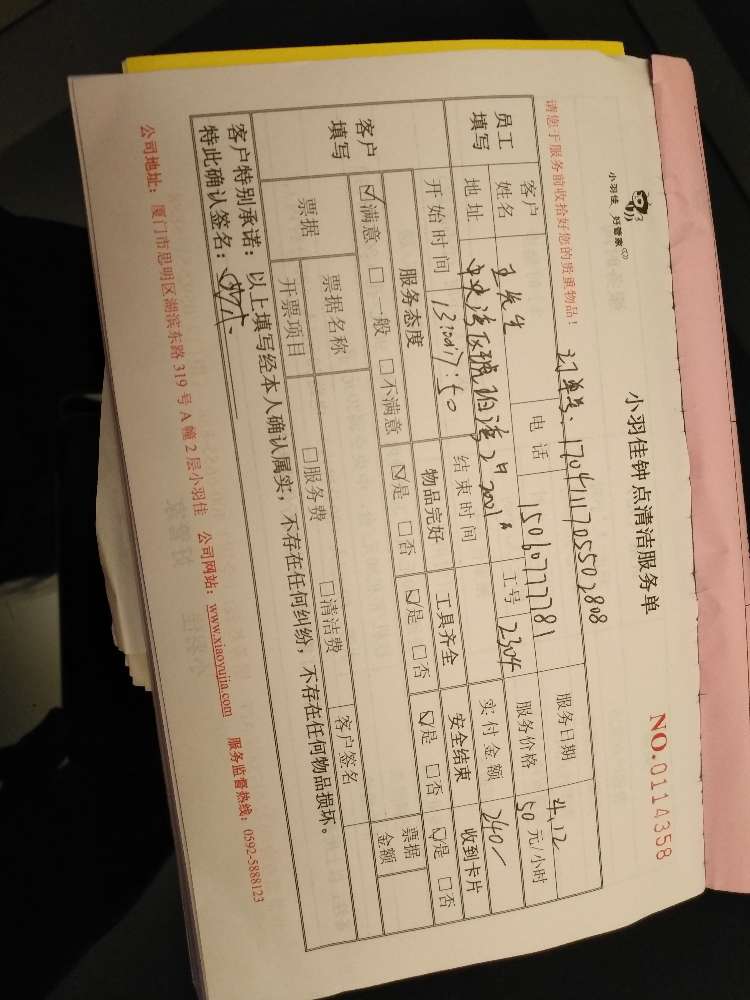 小羽佳 好管家
小羽佳钟点清洁服务单
NO.0114358
请您于服务前收拾好您的贵重物品！
订单号：17041117055502808
员工填写
客户姓名
王先生
电话
15060777781
服务日期
4.12
地址
2001
工号
2304
服务价格
50 元/小时
开始时间
结束时间
实付金额
240
客户填写
服务态度
物品完好
工具齐全
安全结束
收到卡片
☑满意 □一般 □不满意
☑是 □否
☑是 □否
☑是 □否
☑是 □否
票据
票据名称
票据金额
开票项目
□服务费 □清洁费
客户签名
客户特别承诺：以上填写经本人确认属实，不存在任何纠纷，不存在任何物品损坏。
特此确认签名：
公司地址：厦门市思明区湖滨东路 319 号 A 幢 2 层小羽佳 公司网站：www.xiaoyujia.com 服务监督热线：0592-5888123